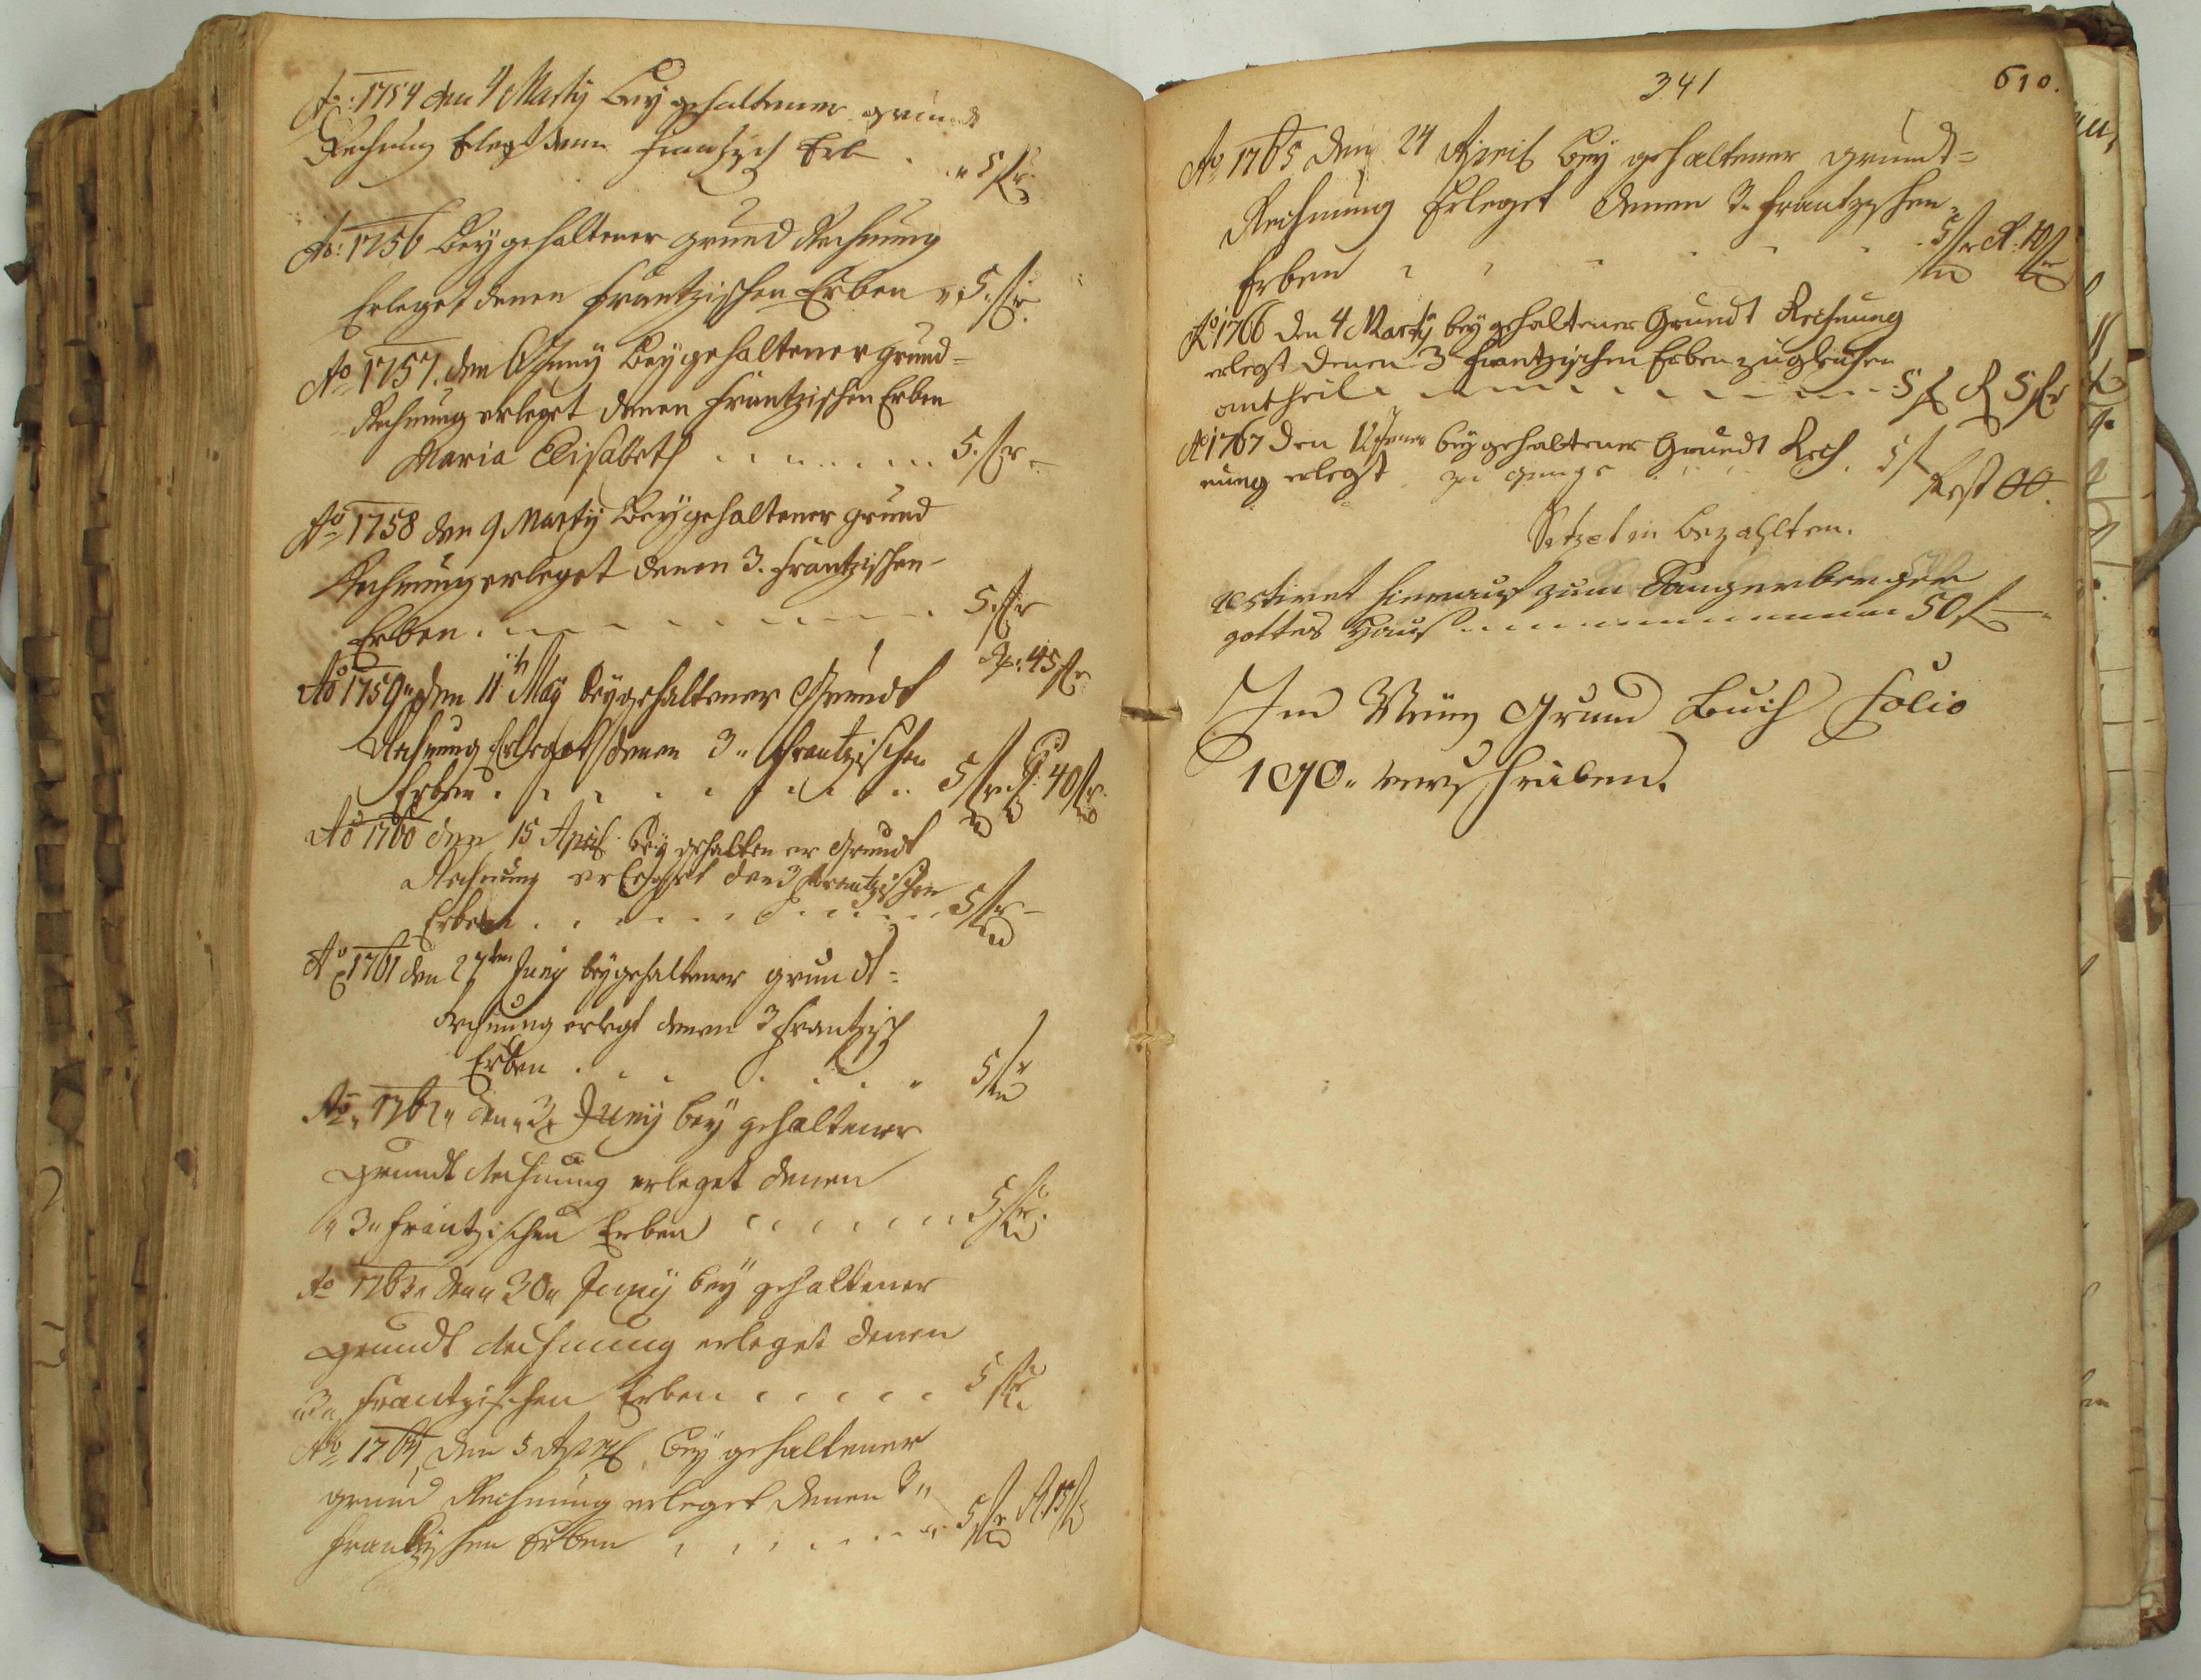 Ao: 1754 den 4 Marty Bey gehaltener grund
Rechnung Erlegt denen Frantzisch Erb . " 5 ſſr
Ao: 1756 Bey gehaltener grund Rechnung
Erleget denen Frantzischen Erben " 5. ſſr
Ao 1757. den Juny Bey gehaltener grund=
Rechnung erleget denen Frantzischen Erben
Maria Elisabeth . . . . . . . 5. ſſr
Ao 1758 den 9. Marty Bey gehaltener grund
Rechnung erleget denen 3. Frantzischen
Erben . . . . . . . . . 5. ſſr
R: 45 ſſr
Ao 1759 " den 11t May bey gehaltener Grundt
Rechnung Erleget denen 3 " Frantzischen
Erben . . . . . . . . . 5 ſſr R 40 ſſr.
Ao 1760 den 15 April bey gehaltener Grundt
Rechnung erleget den 3 Frantzischen
Erben . . . . . . . . . 5 ſſr
Ao 1761 den 27ten Juny bey gehaltener grundt=
rechnung erlegt denen 3 Frantzisch
Erben . . . . . . . 5 ſſr
Ao " 1762 " den " 3 Juny bey gehaltener
Grundt Rechnung erleget denen
" 3 " Frantzischen Erben . . . . . . 5 ſſr.
Ao 1763 " den " 30 " Juny bey gehaltener
grundt Rechnung erleget denen
" 3 " Frantzischen Erben . . . . . 5 ſſr
Ao 1764, den 5 April, bey gehaltener
grund Rechnung erleget denen 3 "
Frantzischen Erben . . . . . . . 5 ſſr R 15 ſſ
341
610.
Ao 1765 den 24 April bey gehaltener grundt=
Rechnung Erleget denen 3 Frantzischen=
Erben . . . . . . . 5 ſſr R. 10 ſſr
Ao 1766 den 4 Marty bey gehaltener Grundt Rechnung
erlegt denen 3 Frantzischen Erben zu gleichen
antheil . . . . . . . . . . 5 ſ R 5 ſſr
Ao 1767 den bey gehaltener Grundt Rech
nung erlegt . . . 5 ſ
Rest 00.
bezahlten.
restiret hierauf zum Sangerberger
gottes Hauß . . . . . . . . . . . 50 ſ
Im Neüen Grund Buch Folio
190 " verschrieben.